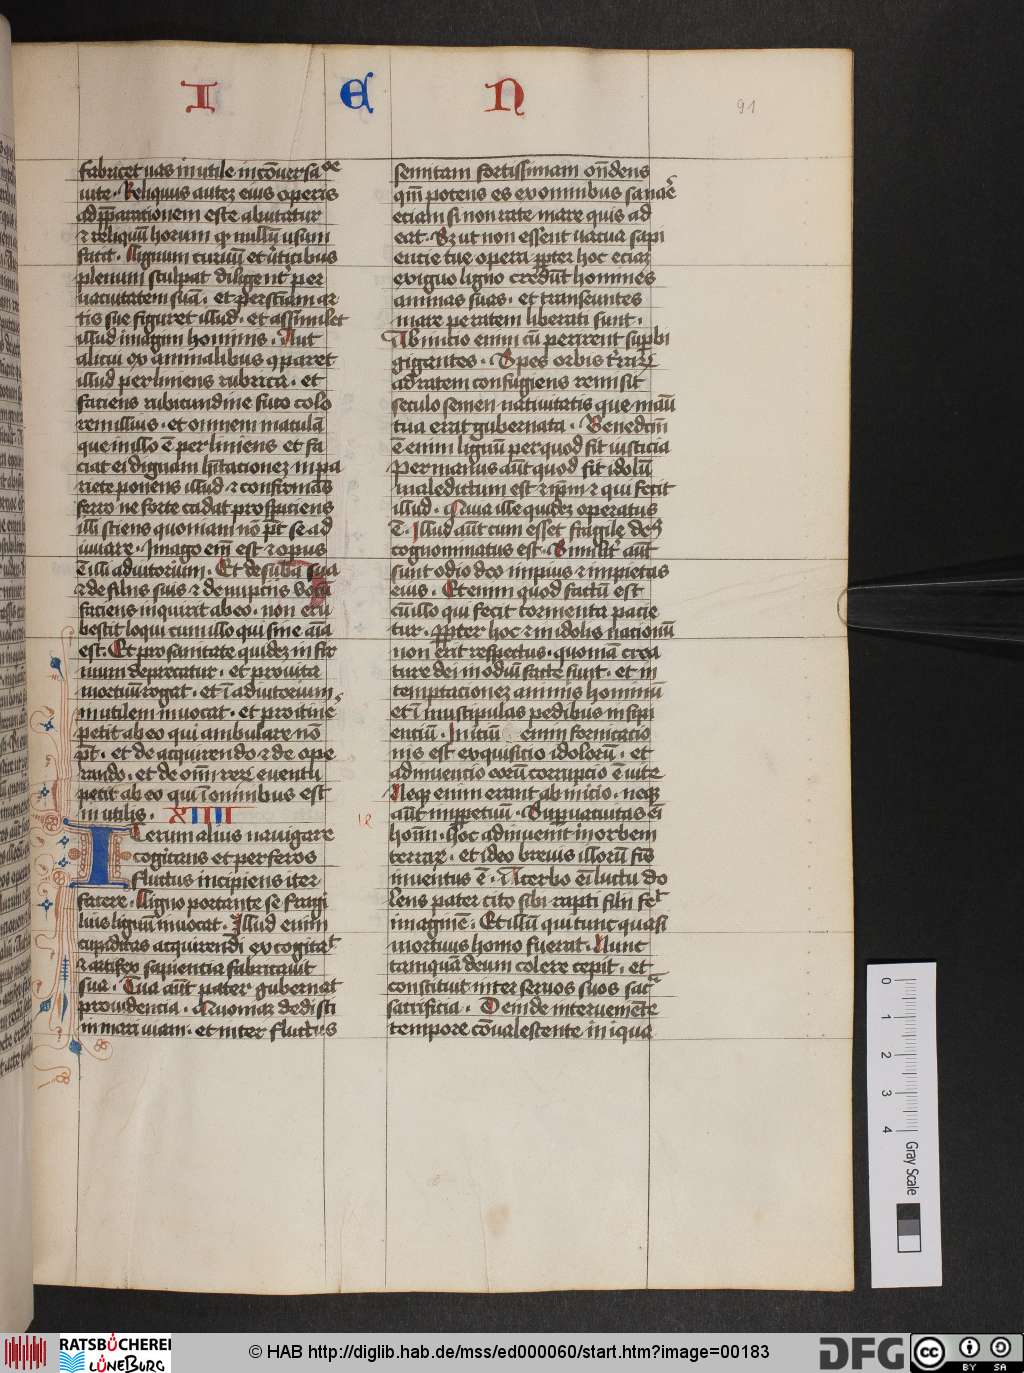 I E N
91
fabricet vas inutile in cōversacōe
vite. Reliquus autez eius operis
ad pparationem este abutatur
et reliquū horum qͥ nullū usum
facit. Lignum curuū et v̓ticibus
plenum sculpat diligentʳ per
vacuitatem suā. et per sciam ar
tis sue figuret illud. et assimilet
illud imagini hominis. Aut
alicui ex animalibus 9paret
illud perliniens rubrica. et
faciens rubicundine fuco colo
rem illius. et omnem maculā
que in illo ē perliniens et fa
ciat ei dignam hītacionez in pa
riete ponens illud et confirmās
ferro ne forte cadat prospiciens
illi sciens quoniam nō pt se ad
iuuare. Imago eni est et opus
ē illi adiutorium. Et de suba sua
et de filiis suis et de nuptiis votū
faciens inquirit ab eo. non eru
bescit loqui cum illo qui sine aīa
est. Et pro sanitate quidez infir
mum deprecatur. et pro vita
mortuū rogat. et ī adiutorium
inutilem inuocat. et pro itinē
petit ab eo qui ambulare nō
pt. et de acquirendo et de ope
rando. et de omi rerū euentu
petit ab eo qui ī omnibus est
inutilis. XIIII
Iterum alius nauigare
cogitans et per feros
fluctus incipiens iter
facere. Ligno portante se fragi
lius lignū inuocat. Illud enim
cupiditas acquirendi excogitat
et artifex sapiencia fabricauit
sua. Tua aūt pater gubernat
prouidencia. Quoniaz dedisti
in mari viam. et inter fluctus
semitam fortissimam ondens
qm potens es ex omnibus sanaē
eciam si non rate mare quis ad
eat. Sz ut non essent vacua sapi
encie tue opera ppter hoc eciaz
exiguo ligno credūt homines
animas suas. et transeuntes
mare per ratem liberati sunt.
Ab inicio enim cū perirent supbi
gigantes. Spes orbis trarz
ad ratem confugiens remisit
seculo semen natiuitatis que manū
tua erat gubernata. Benedcm
ē enim lignū per quod fit iusticia
Per manus aūt quod fit idolū
maledictum est et ipm et qui fecit
illud. Quia ille quidez operatus
ē. Illud aūt cum esset fragile de9
cognominatus est. Similitʳ aūt
sunt odio deo impius et impietas
eius. Etenim quod factū est
cū illo qui fecit tormenta pacie
tur. Ppter hoc et in idolis nationū
non erit respectus. quoniā crea
ture dei in odiū facte sunt. et in
temptacionez animis hominū
et ī muscipulas pedibus insipi
enciū. Iniciū enim fornicacio
nis est exquisicio idolorū. et
adinuencio eorū corrupcio ē vite
Neqz enim erant ab inicio. neqz
12
aūt inppetuū. Supuacuitas eī
hoīm. Hoc adinuenit in orbem
terrarz. et ideo breuis illorū fis
inuentus ē. Acerbo eī luctu do
lens pater cito sibi rapti filii fet
imaginē. Et illū qui tunc quasi
mortuus homo fuerat. Nunc
tamquā deum colere cepit. et
constituit inter seruos suos sacr
sacrificia. Deinde interueniēte
tempore cōualescente iniqua
0
1
2
3
4
Gray Scale
RATSBÜCHEREI
LÜNEBURG
© HAB http://diglib.hab.de/mss/ed000060/start.htm?image=00183
DFG
cc
BY SA